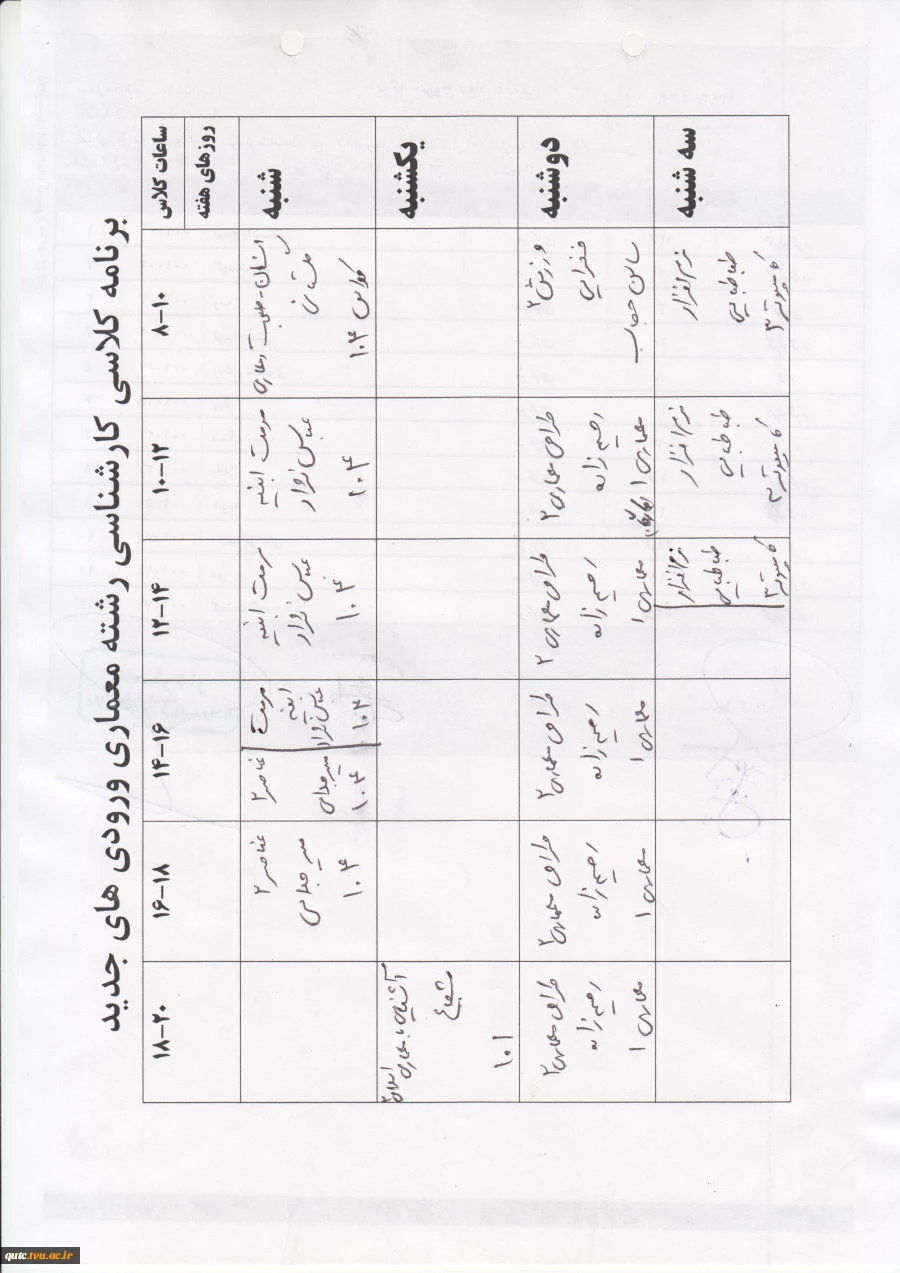 برنامه کلاسی کارشناسی رشته معماری ورودی های جدید
ساعات کلاس
۸-۱۰
۱۰-۱۲
۱۲-۱۴
۱۴-۱۶
۱۶-۱۸
۱۸-۲۰
روزهای هفته
شنبه
انسان - طبیعت - معماری
کلاس ۱۰۴
مرمت ابنیه
۱۰۴
مرمت ابنیه
۱۰۴
مرمت ابنیه
۱۰۴
عناصر ۲
۱۰۴
عناصر ۲
۱۰۴
یکشنبه
آشنایی با معماری اسلامی ۲
شعاع
۱۰۱
دوشنبه
ورزش ۲
سالن حجاب
طراحی معماری ۲
رحیم زاده
معماری ۱
طراحی معماری ۲
رحیم زاده
معماری ۱
طراحی معماری ۲
رحیم زاده
معماری ۱
طراحی معماری ۲
رحیم زاده
معماری ۱
طراحی معماری ۲
رحیم زاده
معماری ۱
سه شنبه
نرم افزار
طباطبایی
کامپیوتر ۳
نرم افزار
طباطبایی
کامپیوتر ۳
نرم افزار
طباطبایی
کامپیوتر ۳
qutc.tvu.ac.ir